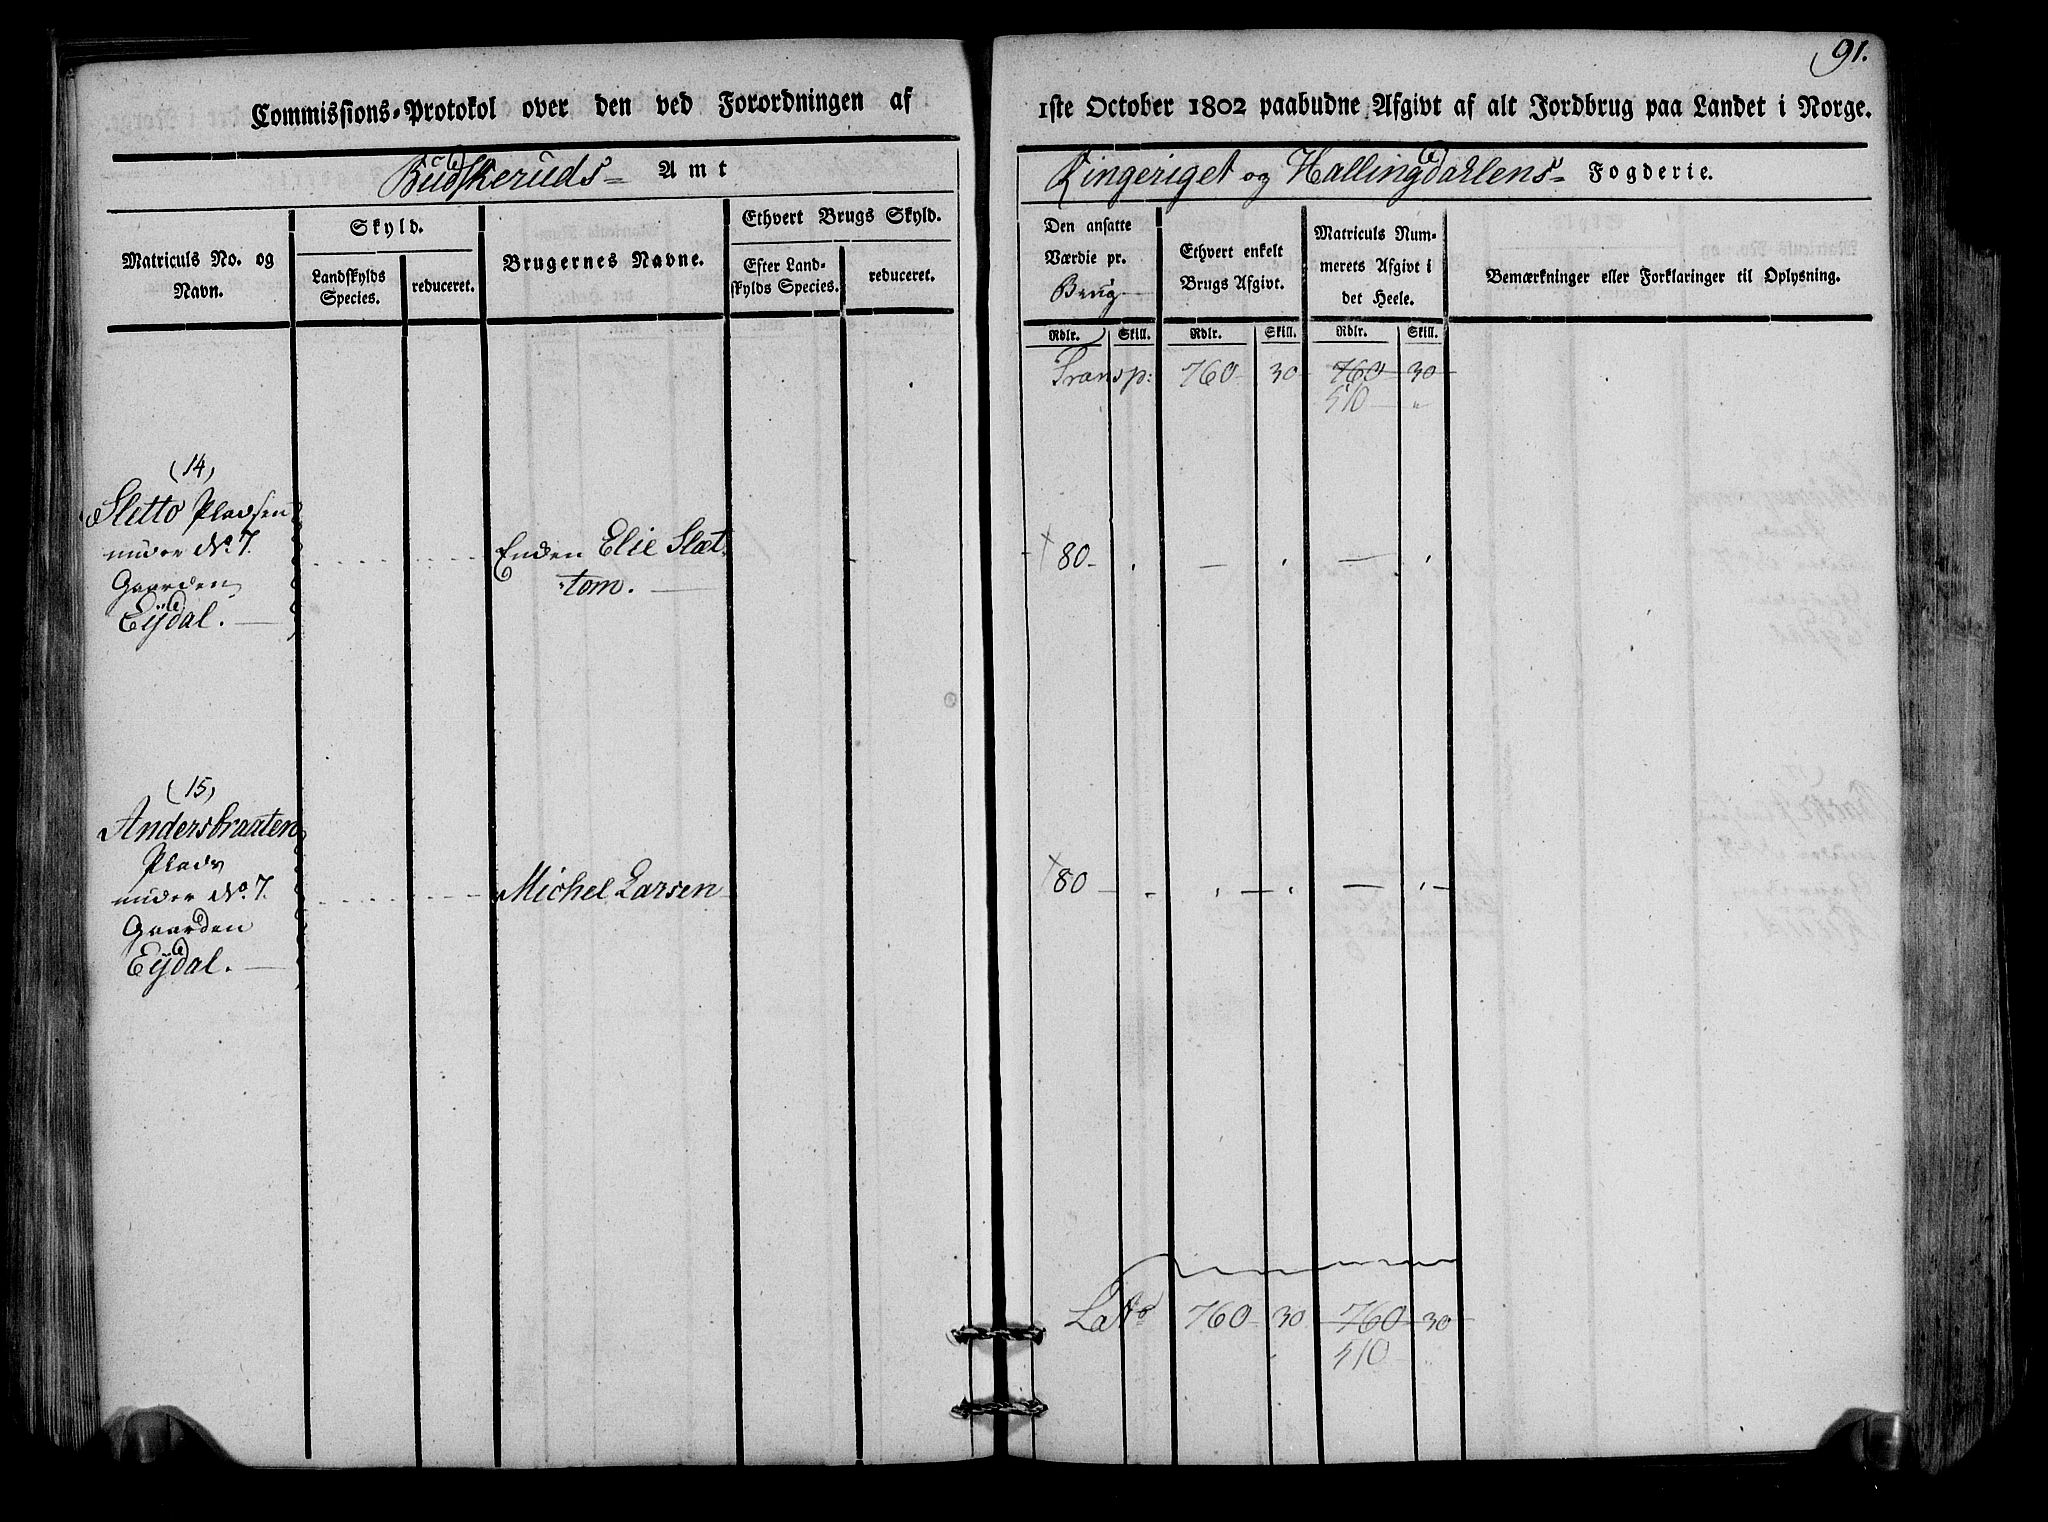 91.
Commissions-Protokol over den ved Forordningen af 1ste October 1802 paabudne Afgivt af alt Jordbrug paa Landet i Norge.
Budskeruds- Amt
Ringeriget og Hallingdahlens- Fogderie.
Matriculs No. og Navn.
Skyld.
Landskylds Species.
reduceret.
Brugernes Navne.
Ethvert Brugs Skyld.
Efter Landskylds Species.
reduceret.
Den ansatte Værdie pr. Brug
Ethvert enkelt Brugs Afgivt.
Matriculs Nummerets Afgivt i det Heele.
Bemærkninger eller Forklaringer til Oplysning.
Rdlr. Skill. Rdlr. Skill. Rdlr. Skill.
Transp: 760 30 760 30
510 "
(14)
Sletto Pladsen
under No. 7.
Gaarden
Eijdal.
Enden Elie Slæt-
tom.
+ 80
(15)
Andersbraaten
Plads
under No. 7.
Gaarden
Eijdal.
Michel Larsen
+ 80
Lat 760 30 760 30
510